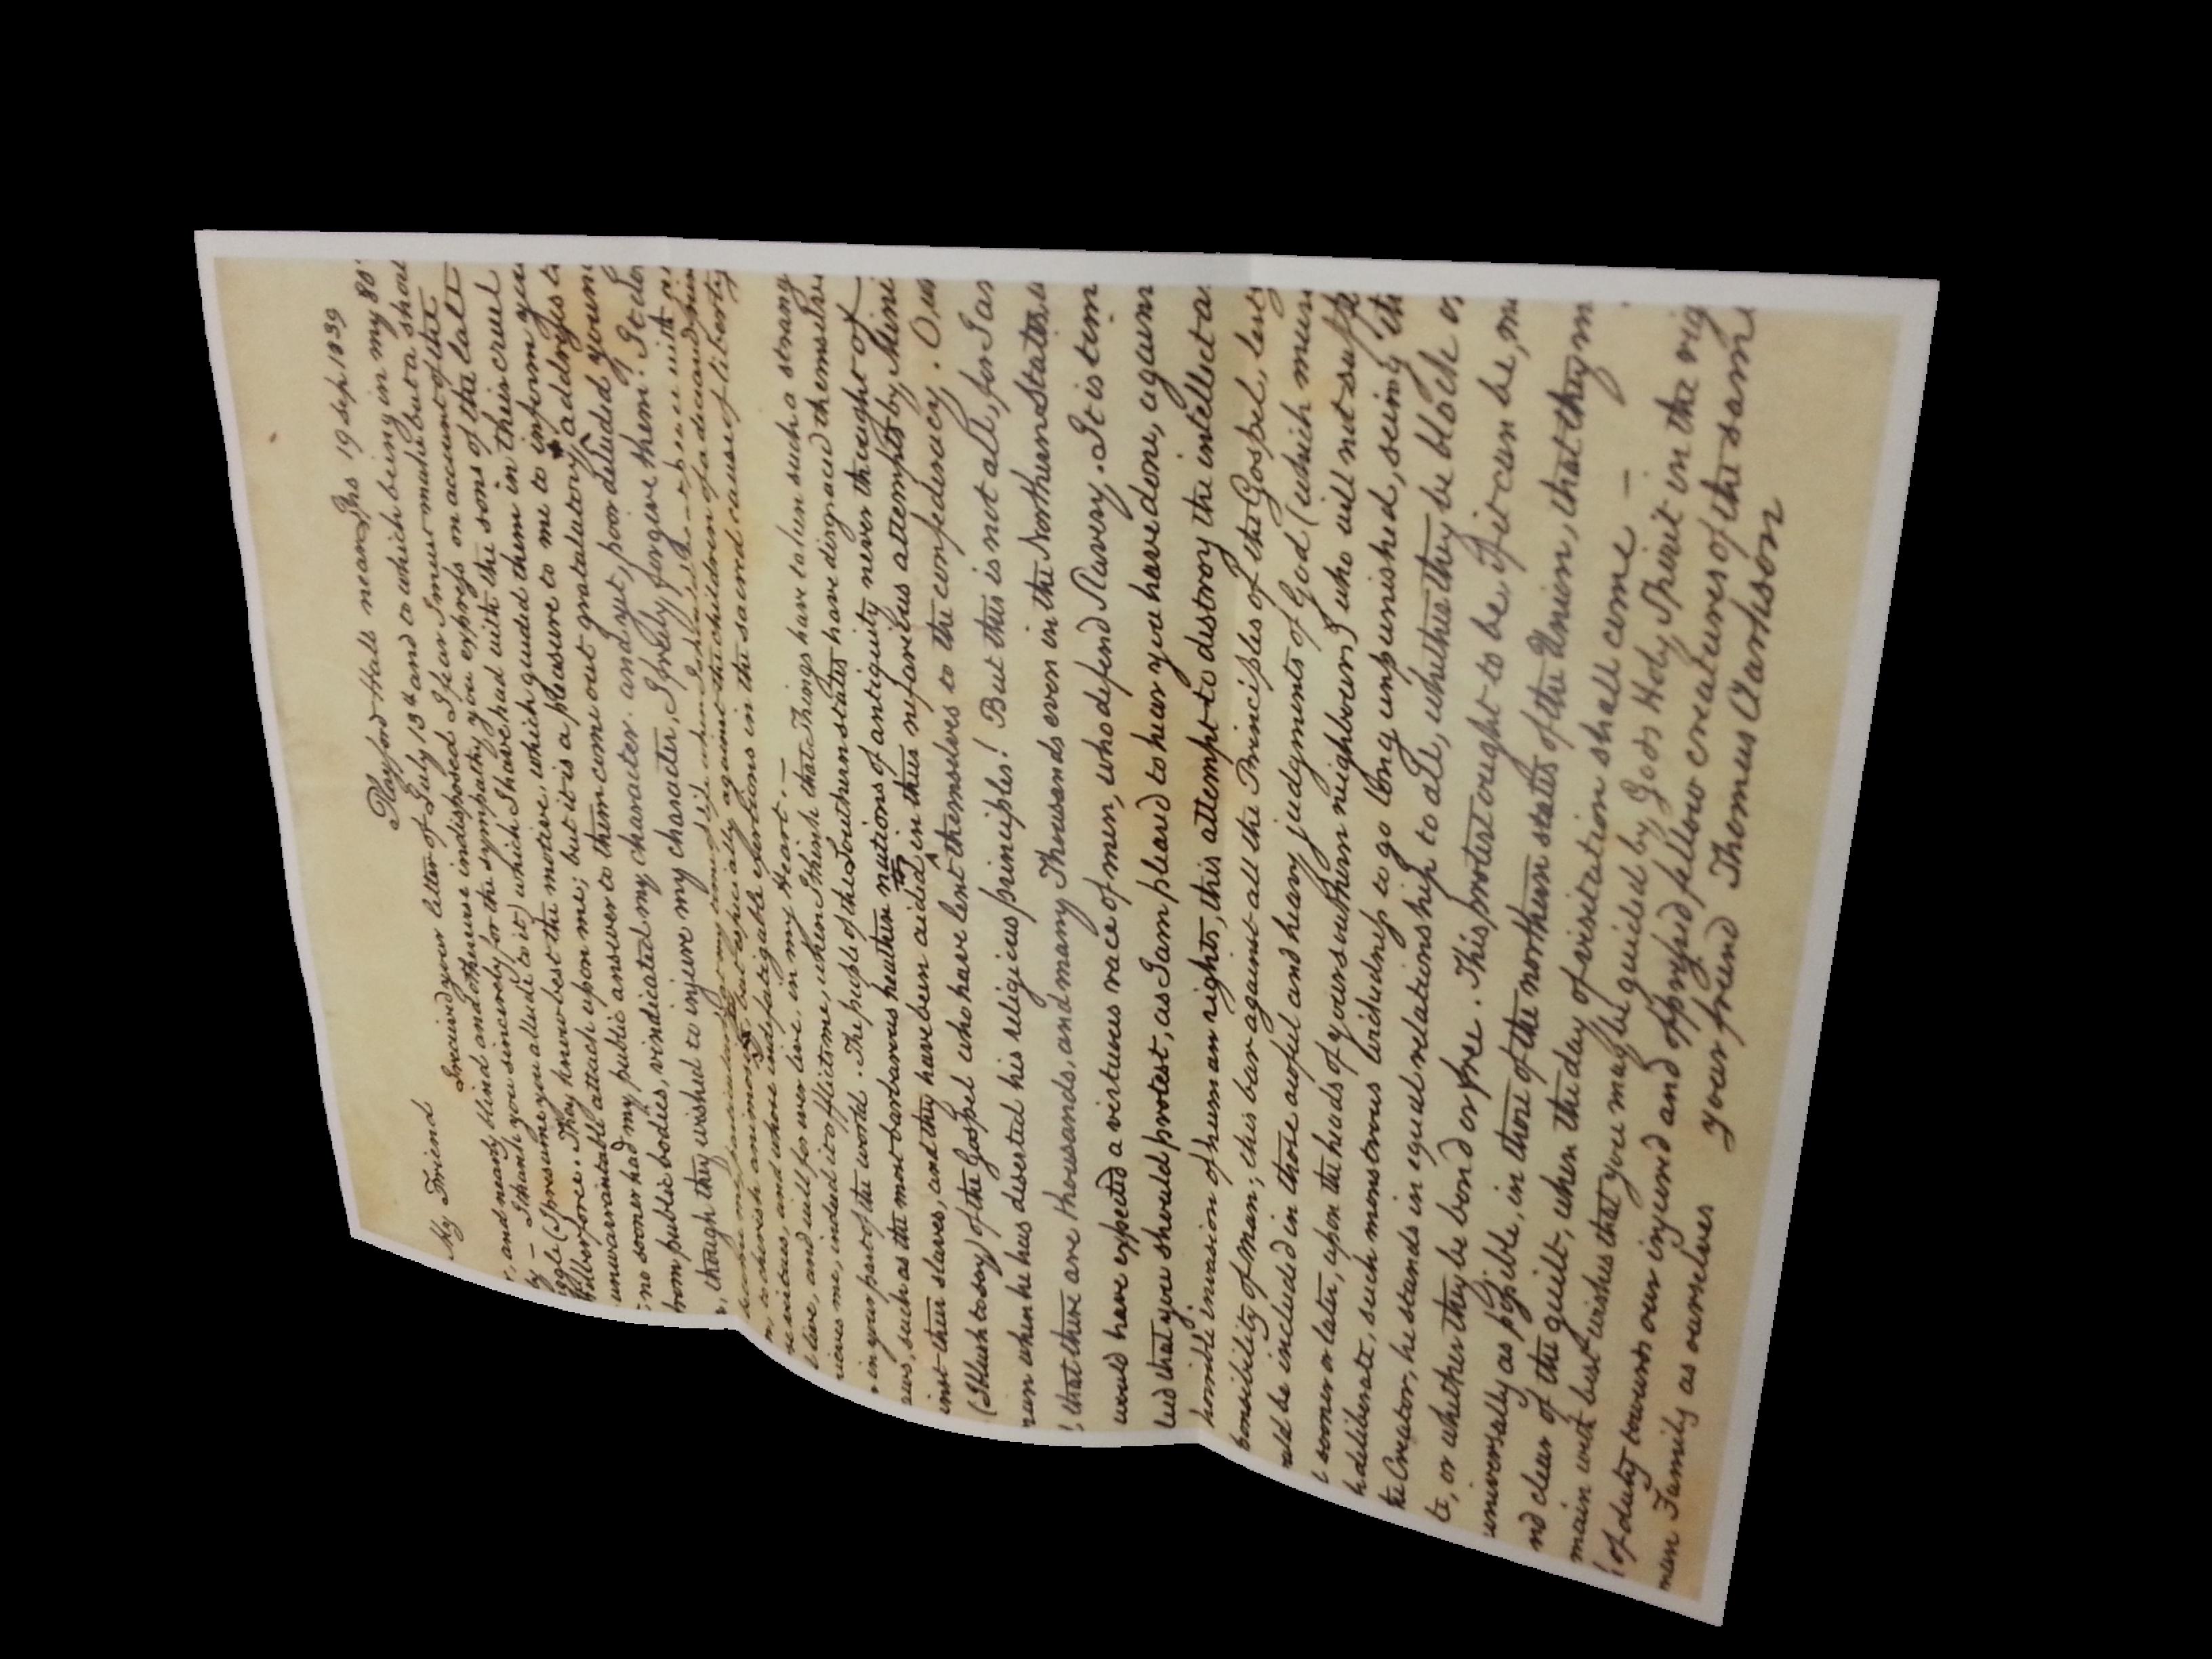 Playford Hall near Ips 19 Sep. 1839
My Friend
I received your letter of July 13th and to which being in my 80
, and nearly blind and otherwise indisposed I fear I must make but a short
ly — I thank you sincerely for the sympathy you express on account of the
ggle (I presume you allude to it) which I have had with the sons of the late
Wilberforce. They know best the motive, which guided them in their cruel
unwarrantable attack upon me; but it is a pleasure to me to inform you
no sooner had my public answer to them come out gratulatory addresses to
from public bodies, vindicated my character. and yet, poor deluded young
, though they wished to injure my character, I freely forgive them. It does
to cherish animosity, but especially against the children of a deceased
virtues, and whose indefatigable exertions in the sacred cause of liberty
l live, and will for ever live, in my Heart. —
rieves me, indeed it afflicts me, when I think that Things have taken such a strange
in your part of the world. The people of the Southern states have disgraced themselves
aws, such as the most barbarous heathen nations of antiquity never thought of
inst their slaves, and they have been aided in this nefarious attempts by Mini
(I blush to say) of the Gospel who have lent themselves to the confederacy. O un
run when he has deserted his religious principles! But this is not all, for I as
, that there are thousands, and many Thousands even in the Northern States
would have expected a virtuous race of men, who defend Slavery. It is tim
led that you should protest, as I am pleased to hear you have done, again
horrible invasion of human rights, this attempt to distroy the intellect a
ponsibility of Man; this bar against all the Principles of the Gospel, lest
uld be included in those awful and heavy judgments of God (which mus
l sooner or later, upon the heads of your southern neighbours) who will not suffe
h deliberate, such monstrous wickedness to go long unpunished, seeing th
the Creator, he stands in equal relationship to all, whether they be black or
te, or whether they be bond or free. This protest ought to be, if it can be, m
universally as possible, in those of the northern states of the Union, that they m
nd clear of the guilt, when the day of visitation shall come —
main with best wishes that you may be guided by Gods Holy Spirit in the rig
of duty towards our injured and oppressed fellow creatures of the same
man Family as ourselves your friend Thomas Clarkson